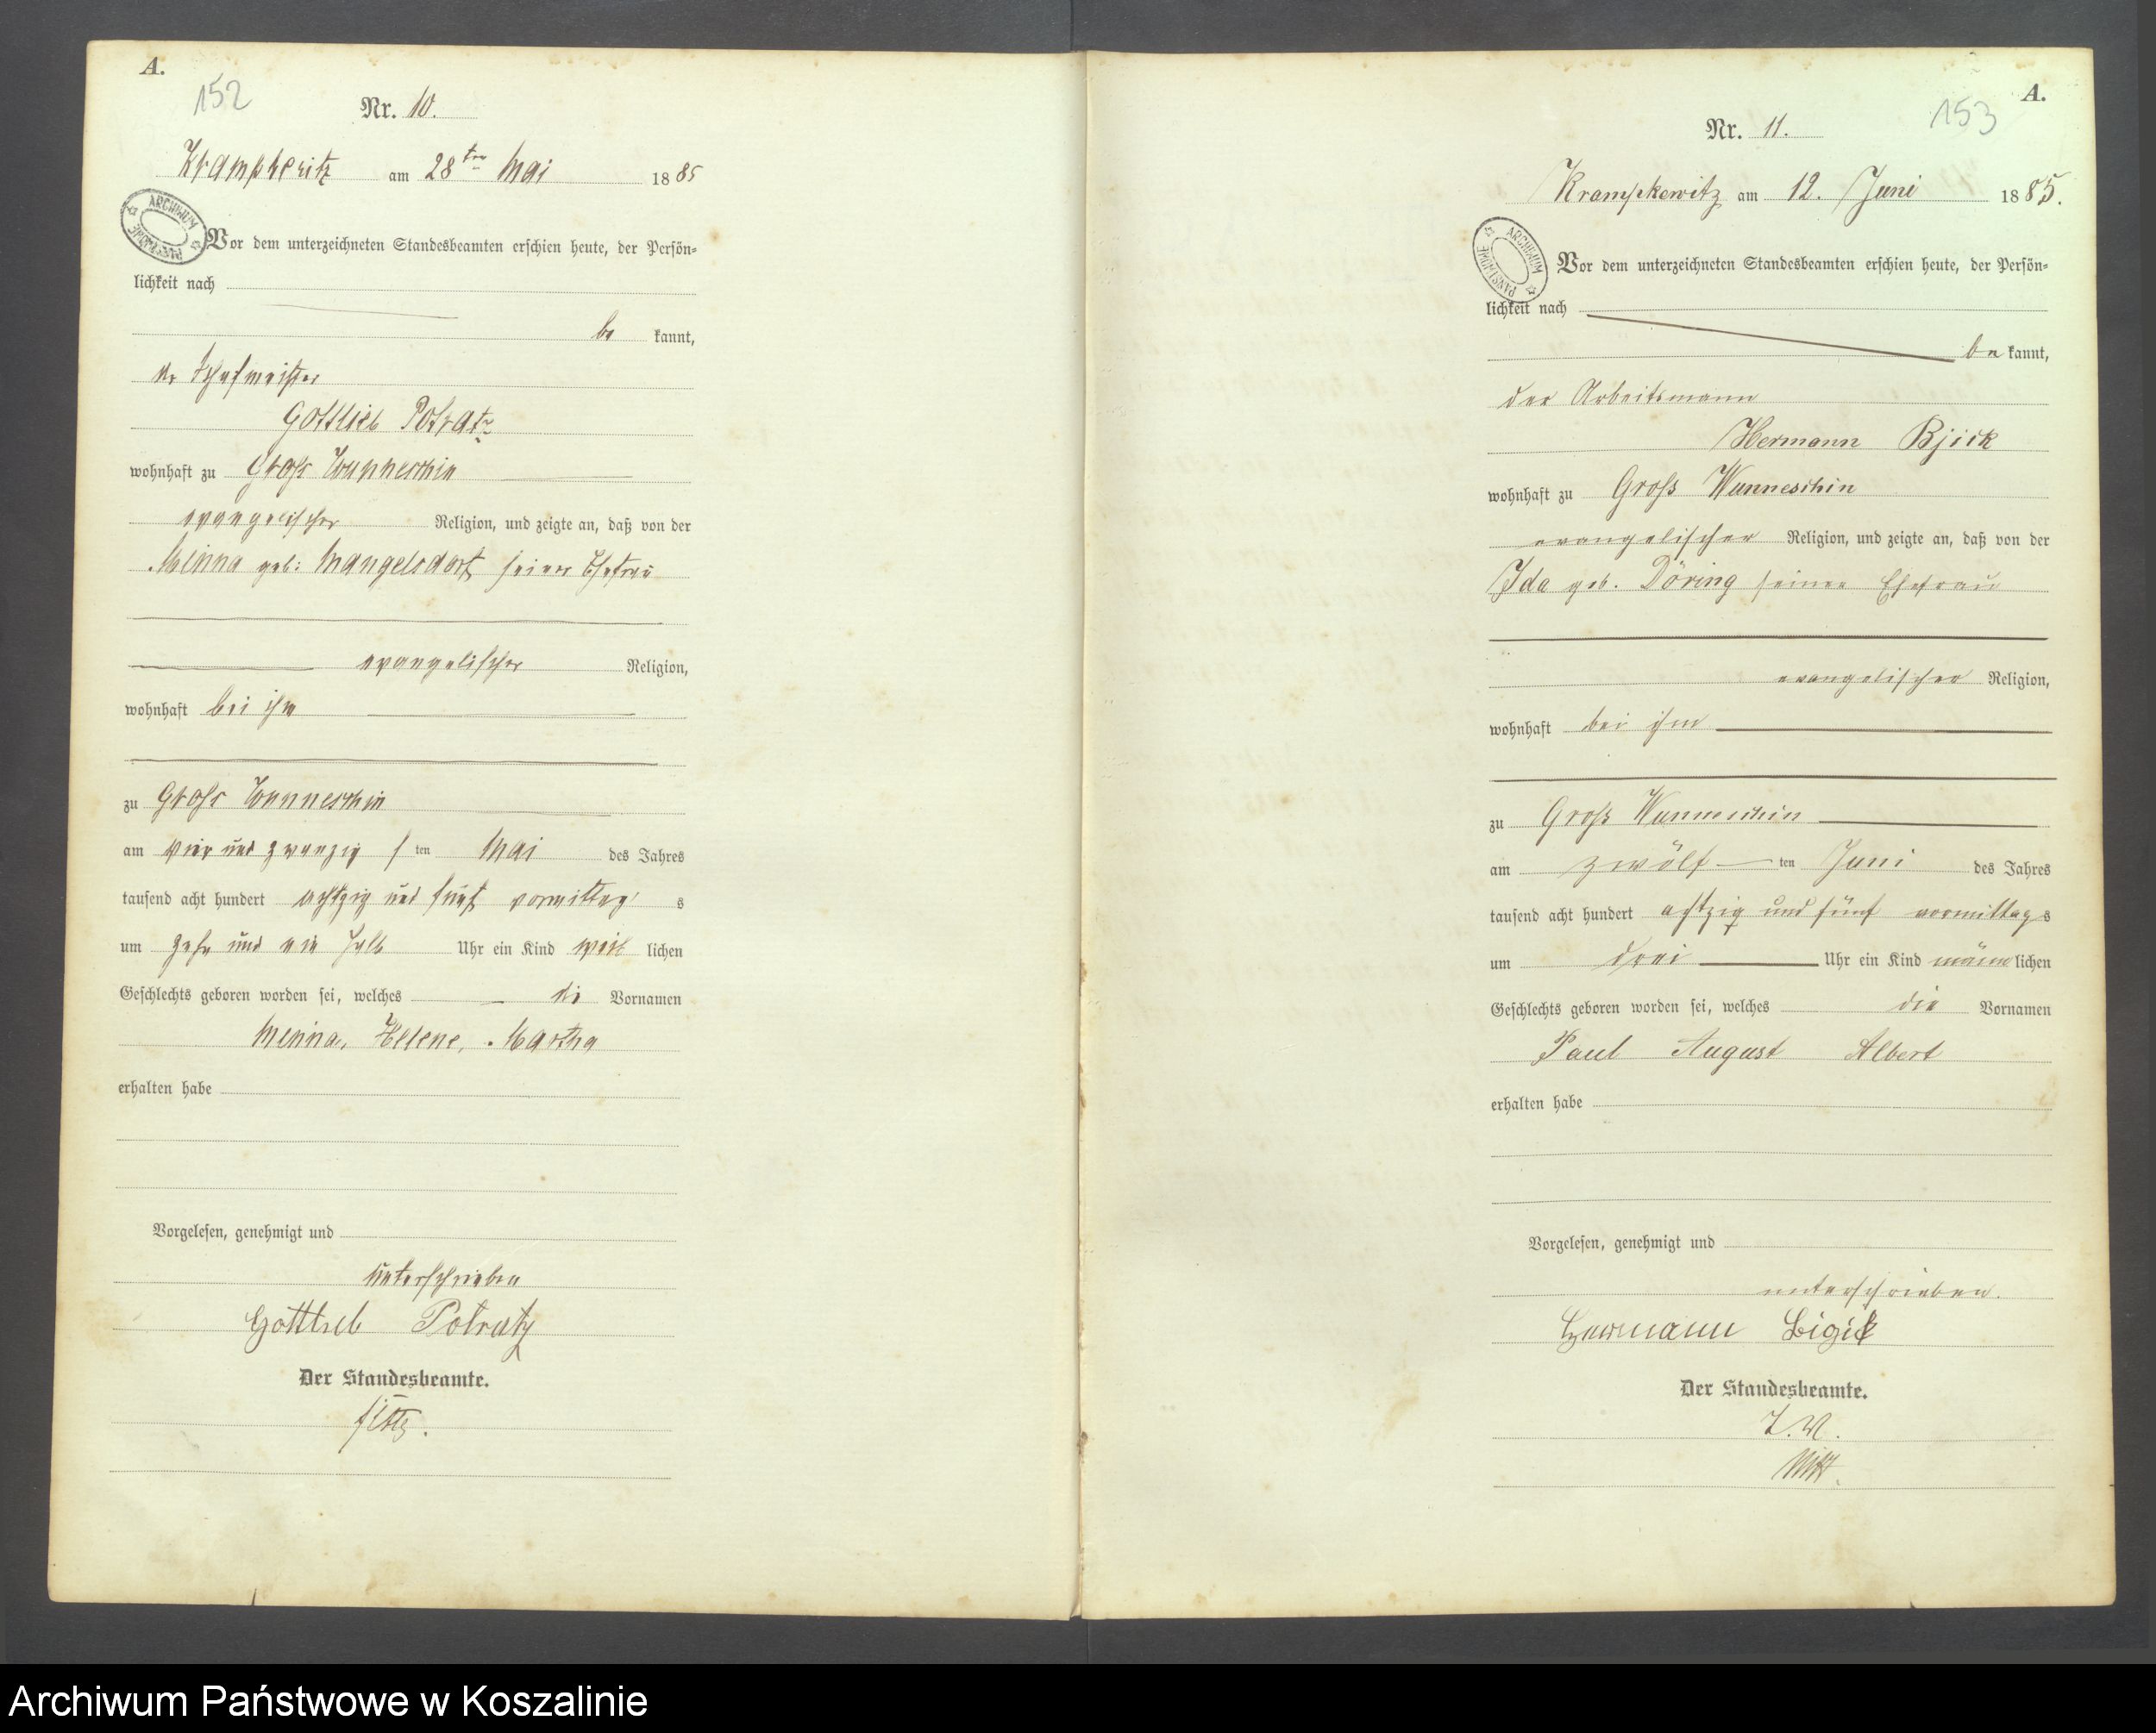 A.
152
Nr. 10.
Krampkewitz am 28ten Mai 1885
ARCHIWUM PAŃSTWOWE
Vor dem unterzeichneten Standesbeamten erschien heute, der Persön=
lichkeit nach
be kannt,
der Schafmeister
Gottlieb Potratz
wohnhaft zu Groß Wunneschin
evangelischer Religion, und zeigte an, daß von der
Minna geb: Mangelsdorf seiner Ehefrau
evangelischer Religion,
wohnhaft bei ihm
zu Groß Wunneschin
am vier und zwanzig sten Mai des Jahres
tausend acht hundert achtzig und fünf vormittag s
um zehn und ein halb Uhr ein Kind weib lichen
Geschlechts geboren worden sei, welches die Vornamen
Minna, Helene, Martha
erhalten habe
Vorgelesen, genehmigt und
unterschrieben
Gottlieb Potratz
Der Standesbeamte.
A.
153
Nr. 11.
Krampkewitz am 12. Juni 1885.
ARCHIWUM PAŃSTWOWE
Vor dem unterzeichneten Standesbeamten erschien heute, der Persön=
lichkeit nach
be kannt,
der Arbeitsmann
Hermann Bjick
wohnhaft zu Groß Wunneschin
evangelischer Religion, und zeigte an, daß von der
Ida geb. Döring seiner Ehefrau
evangelischer Religion,
wohnhaft bei ihm
zu Groß Wunneschin
am zwölf ten Juni des Jahres
tausend acht hundert achtzig und fünf vormittags
um drei Uhr ein Kind männlichen
Geschlechts geboren worden sei, welches die Vornamen
Paul August Albert
erhalten habe
Vorgelesen, genehmigt und
unterschrieben.
Hermann Bigick
Der Standesbeamte.
Archiwum Państwowe w Koszalinie